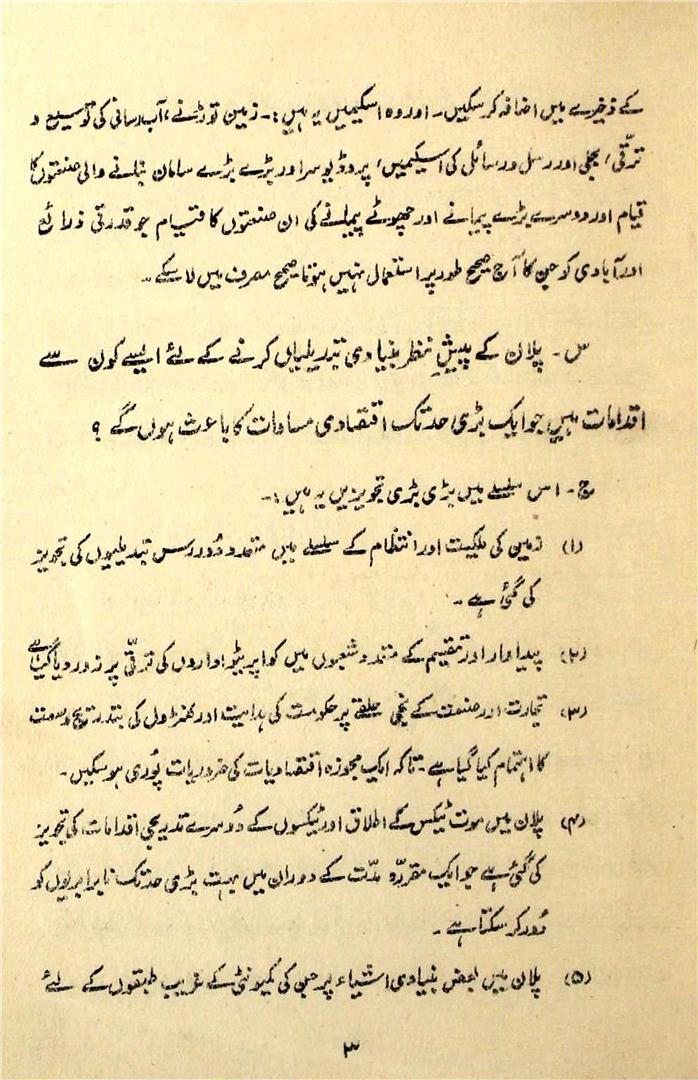 کے ذخیرے میں اضافہ کر سکیں۔ اور وہ اسکیمیں یہ ہیں:۔ زمین توڑنے، آب رسانی کی توسیع و
ترقّی، بجلی اور رسل و رسائل کی اسکیمیں، پروڈیوسر اور بڑے بڑے سامان بنانے والی صنعتوں کا
قیام اور دوسرے بڑے پیمانے اور چھوٹے پیمانے کی ان صنعتوں کا قیام جو قدرتی ذرائع
اور آبادی کو جن کا آج صحیح طور پر استعمال نہیں ہوتا صحیح مصرف میں لا سکے۔
س۔ پلان کے پیشِ نظر بنیادی تبدیلیاں کرنے کے لئے ایسے کون سے
اقدامات ہیں جو ایک بڑی حد تک اقتصادی مساوات کا باعث ہوں گے ؟
ج۔ اس سلسلے میں بڑی بڑی تجویزیں یہ ہیں:۔
(۱) زمین کی ملکیت اور انتظام کے سلسلے میں متعدد دُور رس تبدیلیوں کی تجویز
کی گئی ہے۔
(۲) پیداوار اور تقسیم کے متعدد شعبوں میں کوآپریٹو اداروں کی ترقّی پر زور دیا گیا ہے
(۳) تجارت اور صنعت کے نجی حلقے پر حکومت کی ہدایت اور کنٹرول کی بتدریج وسعت
کا اہتمام کیا گیا ہے۔ تاکہ ایک مجوزہ اقتصادیات کی ضروریات پُوری ہو سکیں۔
(۴) پلان میں موت ٹیکس کے اطلاق اور ٹیکسوں کے دُوسرے تدریجی اقدامات کی تجویز
کی گئی ہے جو ایک مقررّہ مدّت کے دوران میں بہت بڑی حد تک نابرابریوں کو
دُور کر سکتا ہے۔
(۵) پلان میں بعض بنیادی اشیاء پر جن کی کمیونٹی کے غریب طبقوں کے لئے
۳